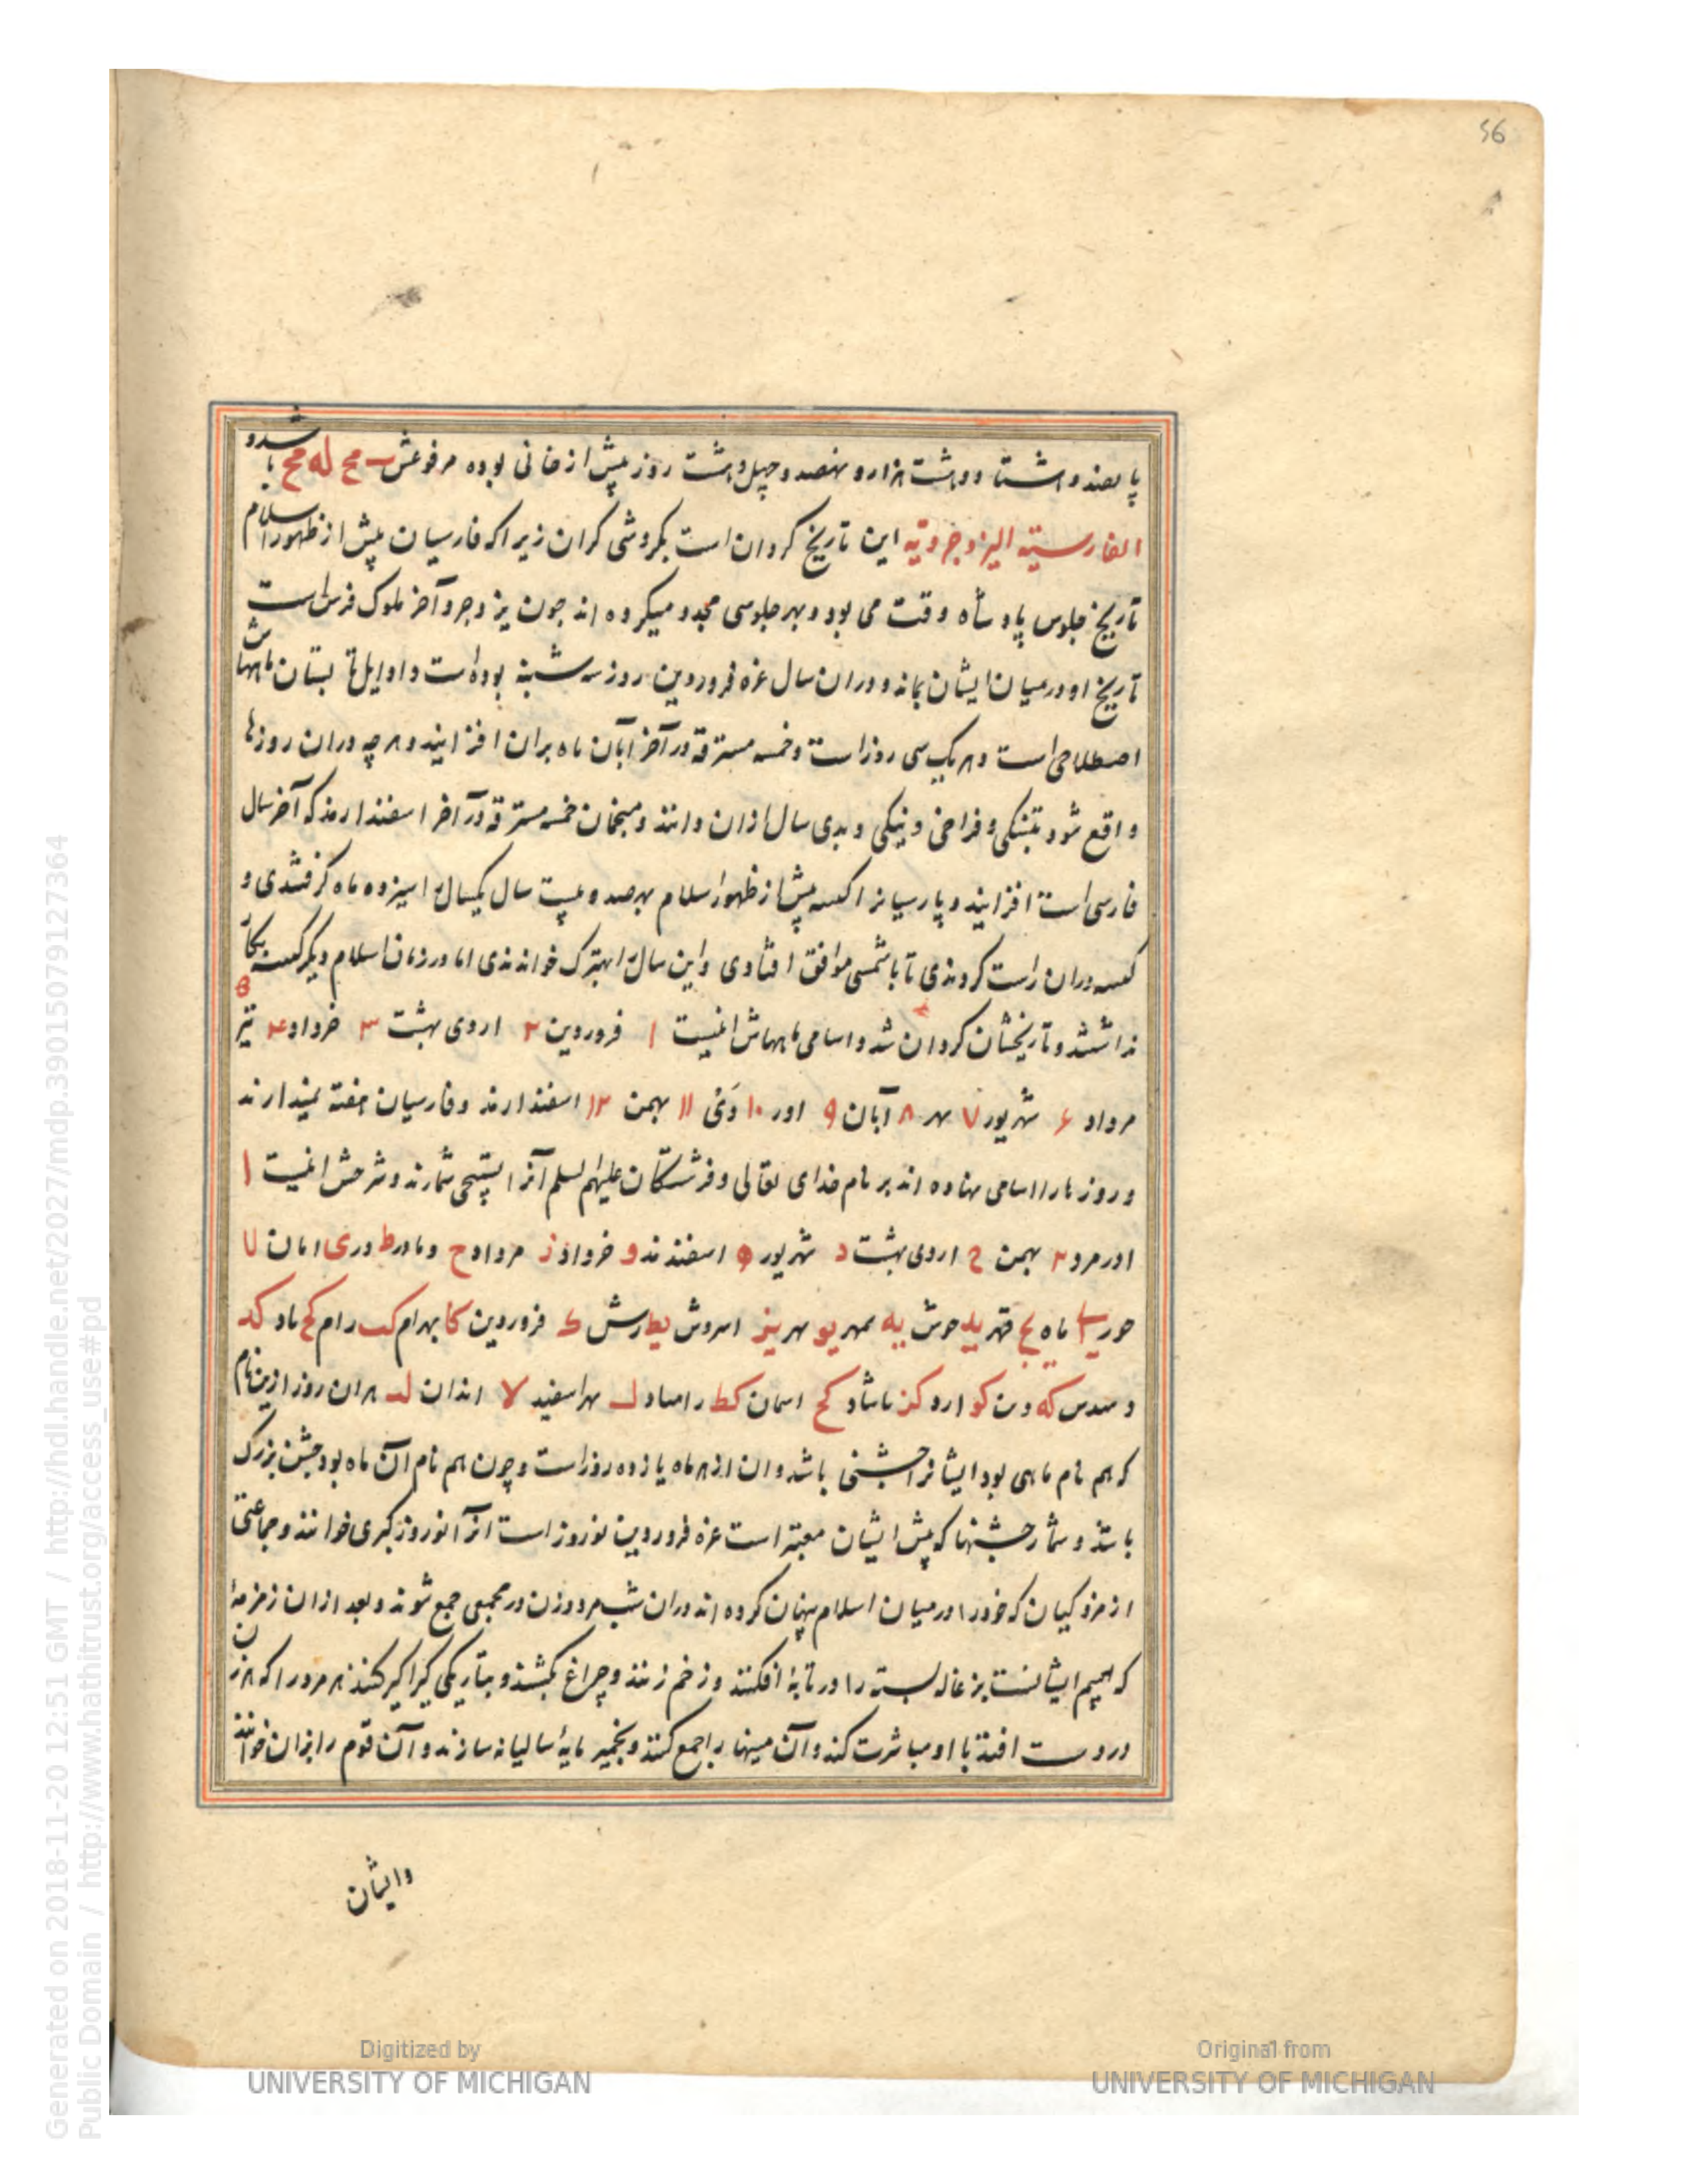 56
پانصد و هشتاد و هشت هزار و نهصد و چهل و هشت روز پیش از خانی بوده مرفوعش مح له مح باشد و
الفارسیّه الیزدجردیّه این تاریخ کردان است بکردشی کران زیراکه فارسیان پیش از ظهور اسلام
تاریخ جلوس پادشاه وقت می بود و بهر جلوسی مجدد میکرده اند چون یزدجرد آخر ملوک فرس است
تاریخ او در میان ایشان بماند و در ان سال غره فروردین روز سه شنبه بوده است و اوایل تابستان ماههاش
اصطلاحی است و هر یک سی روز است و خمسه مسترقه در آخر آبان ماه بران افزایند و هر چه دران روزها
واقع شود بتنکی و فراخی و نیکی و بدی سال ازان دانند و منجمان خمسه مسترقه در آخر اسفندارمذ که آخر سال
فارسی است افزایند و پارسیانرا کبسه پیش از ظهور اسلام بهر صد و بیست سال یکسال را سیزده ماه کرفتندی و
کبسه دران راست کردندی تا با شمسی موافق افتادی و این سال را بهترک خواندندی اما در زمان اسلام دیکر کبسه بکار
نداشتند و تاریخشان کردان شد و اسامی ماههاش اینست ۱ فروردین ۲ اردی بهشت ۳ خرداد ۴ تیر ۵
مرداد ۶ شهریور ۷ مهر ۸ آبان ۹ اور ۱۰ دَی ۱۱ بهمن ۱۲ اسفندارمذ و فارسیان هفته نمیدارند
و روزها را اسامی نهاده اند بر نام خدای تعالی و فرشتکان علیهم لسلم آنرا بتسبیحی شمارند و شرحش اینست ا
اورمرد ۲ بهمن ج اردی بهشت د شهریور ه اسفندمد و خرداد ز مرداد ح دمادر ط دری امان یا
حور یب ماه یج قهر ید حوش یه ممهر یو مهر یز اسروش یط رسش ک فروردین کا بهرام کب رام کج باد کد
و سدس که دین کو ارد کز ماشاد کح اسمان کط رامیاد ل مهراسفید لا انذان لد هران روز ازین نام
که هم نام ماهی بود ایشانرا جشنی باشد و ان از هر ماه یازده روز است و چون هم نام آن ماه بود جشن بزرک
باشد و شمار جشنها که پیش ایشان معتبر است غره فروردین نوروز است انرا نوروز کبری خوانند و جماعتی
از مزدکیان که خود را در میان اسلام پنهان کرده اند دران شب مرد و زن در مجمعی جمع شوند و بعد ازان زمزمهٔ
که ایشانست بزغاله بسته را در تابهٔ افکنند و زخم زنند و چراغ بکشند و بتاریکی کیراکیر کنند هر مرد را که هر زن
در دست افتد با او مباشرت کند و آن را جمع کنند و بخمیر مایهٔ سالیانه سازند و آن قوم را خوانند
وایشان
Generated on 2018-11-20 12:51 GMT / http://hdl.handle.net/2027/mdp.39015079127364
Public Domain / http://www.hathitrust.org/access_use#pd
Digitized by
UNIVERSITY OF MICHIGAN
Original from
UNIVERSITY OF MICHIGAN